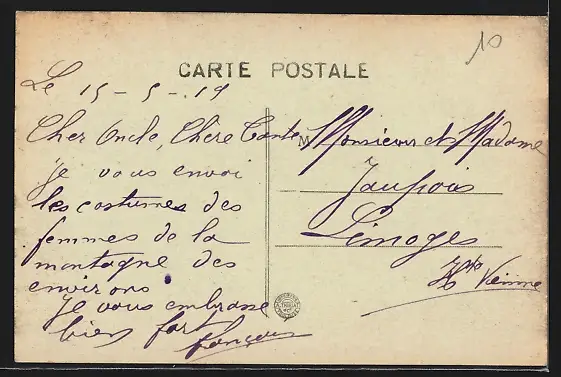 10
CARTE POSTALE
Le 15-5-19
Cher Oncle, Chère Tante
je vous envoi
les costumes des
femmes de la
montagne des
environs
Je vous embrasse
bien fort
François
M Monsieur et Madame
Limoges
Hte Vienne